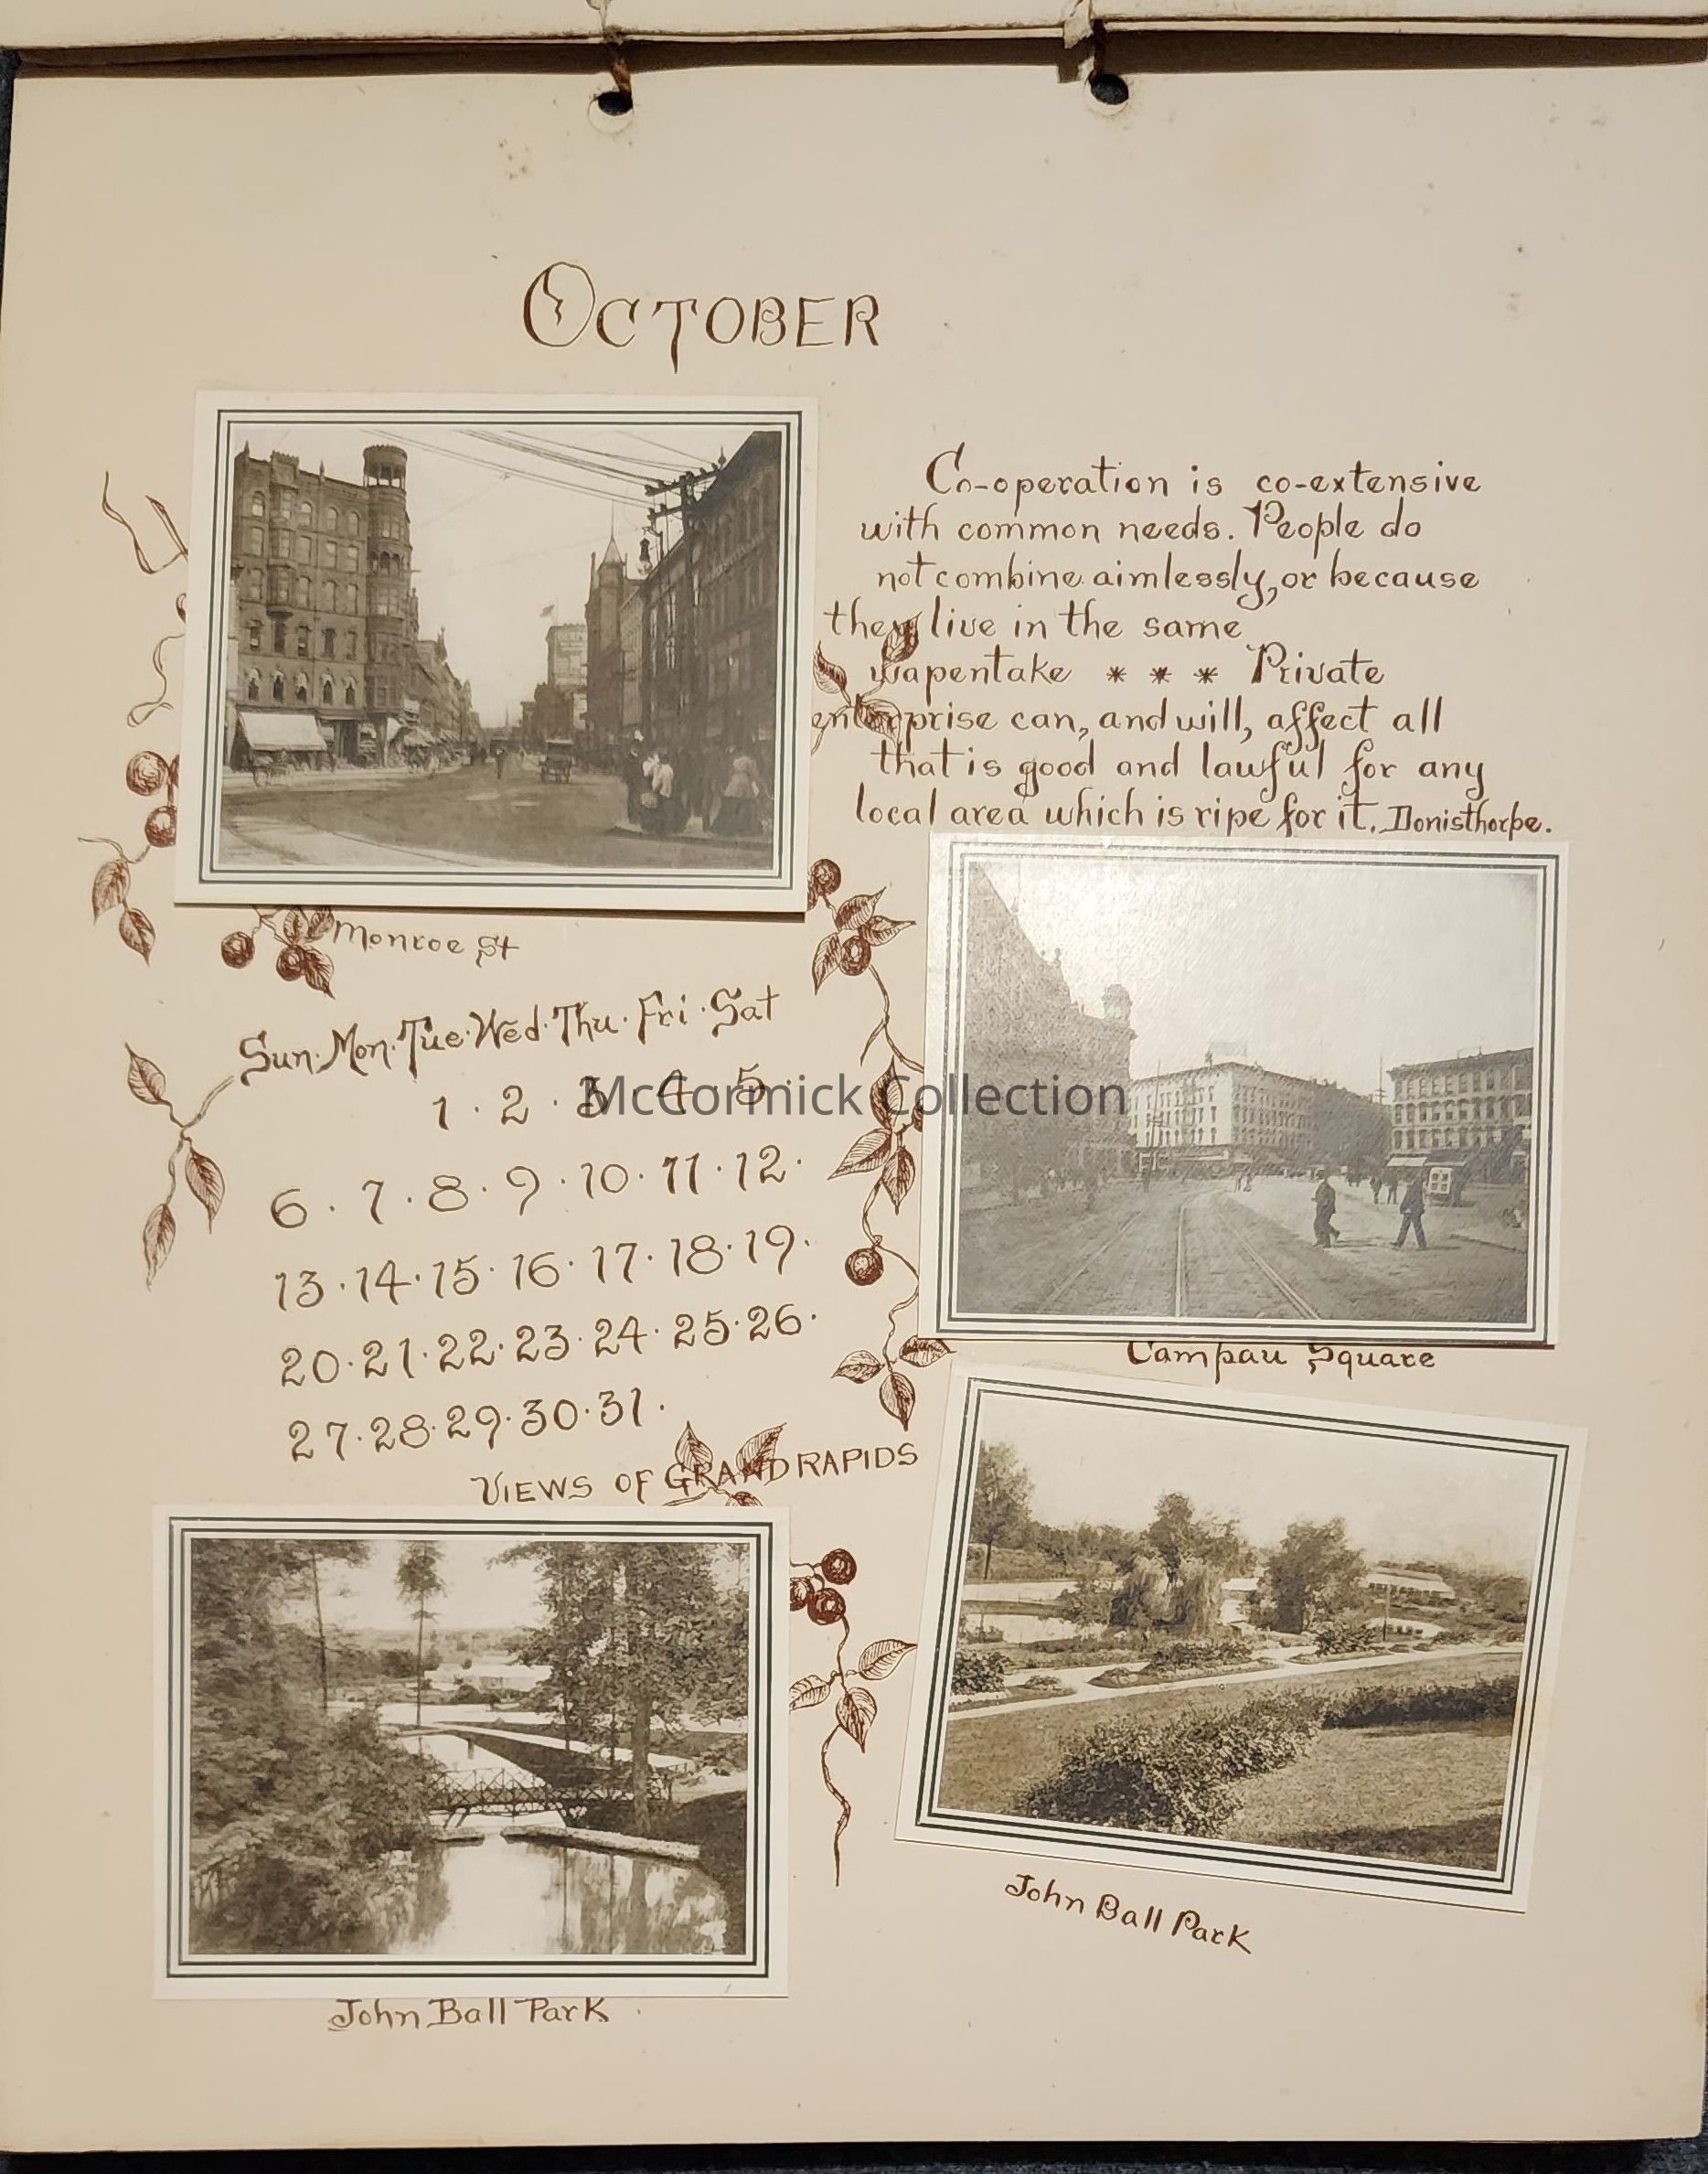 OCTOBER
Co-operation is co-extensive
with common needs. People do
not combine aimlessly, or because
they live in the same
wapentake * * * Private
enterprise can, and will, affect all
that is good and lawful for any
local area which is ripe for it. Donisthorpe.
Monroe St
Sun. Mon. Tue. Wed. Thu. Fri. Sat
1 · 2 · 3 · 4 · 5 ·
6 · 7 · 8 · 9 · 10 · 11 · 12 ·
13 · 14 · 15 · 16 · 17 · 18 · 19 ·
20 · 21 · 22 · 23 · 24 · 25 · 26 ·
27 · 28 · 29 · 30 · 31 ·
McCormick Collection
Campau Square
VIEWS OF GRAND RAPIDS
John Ball Park
John Ball Park